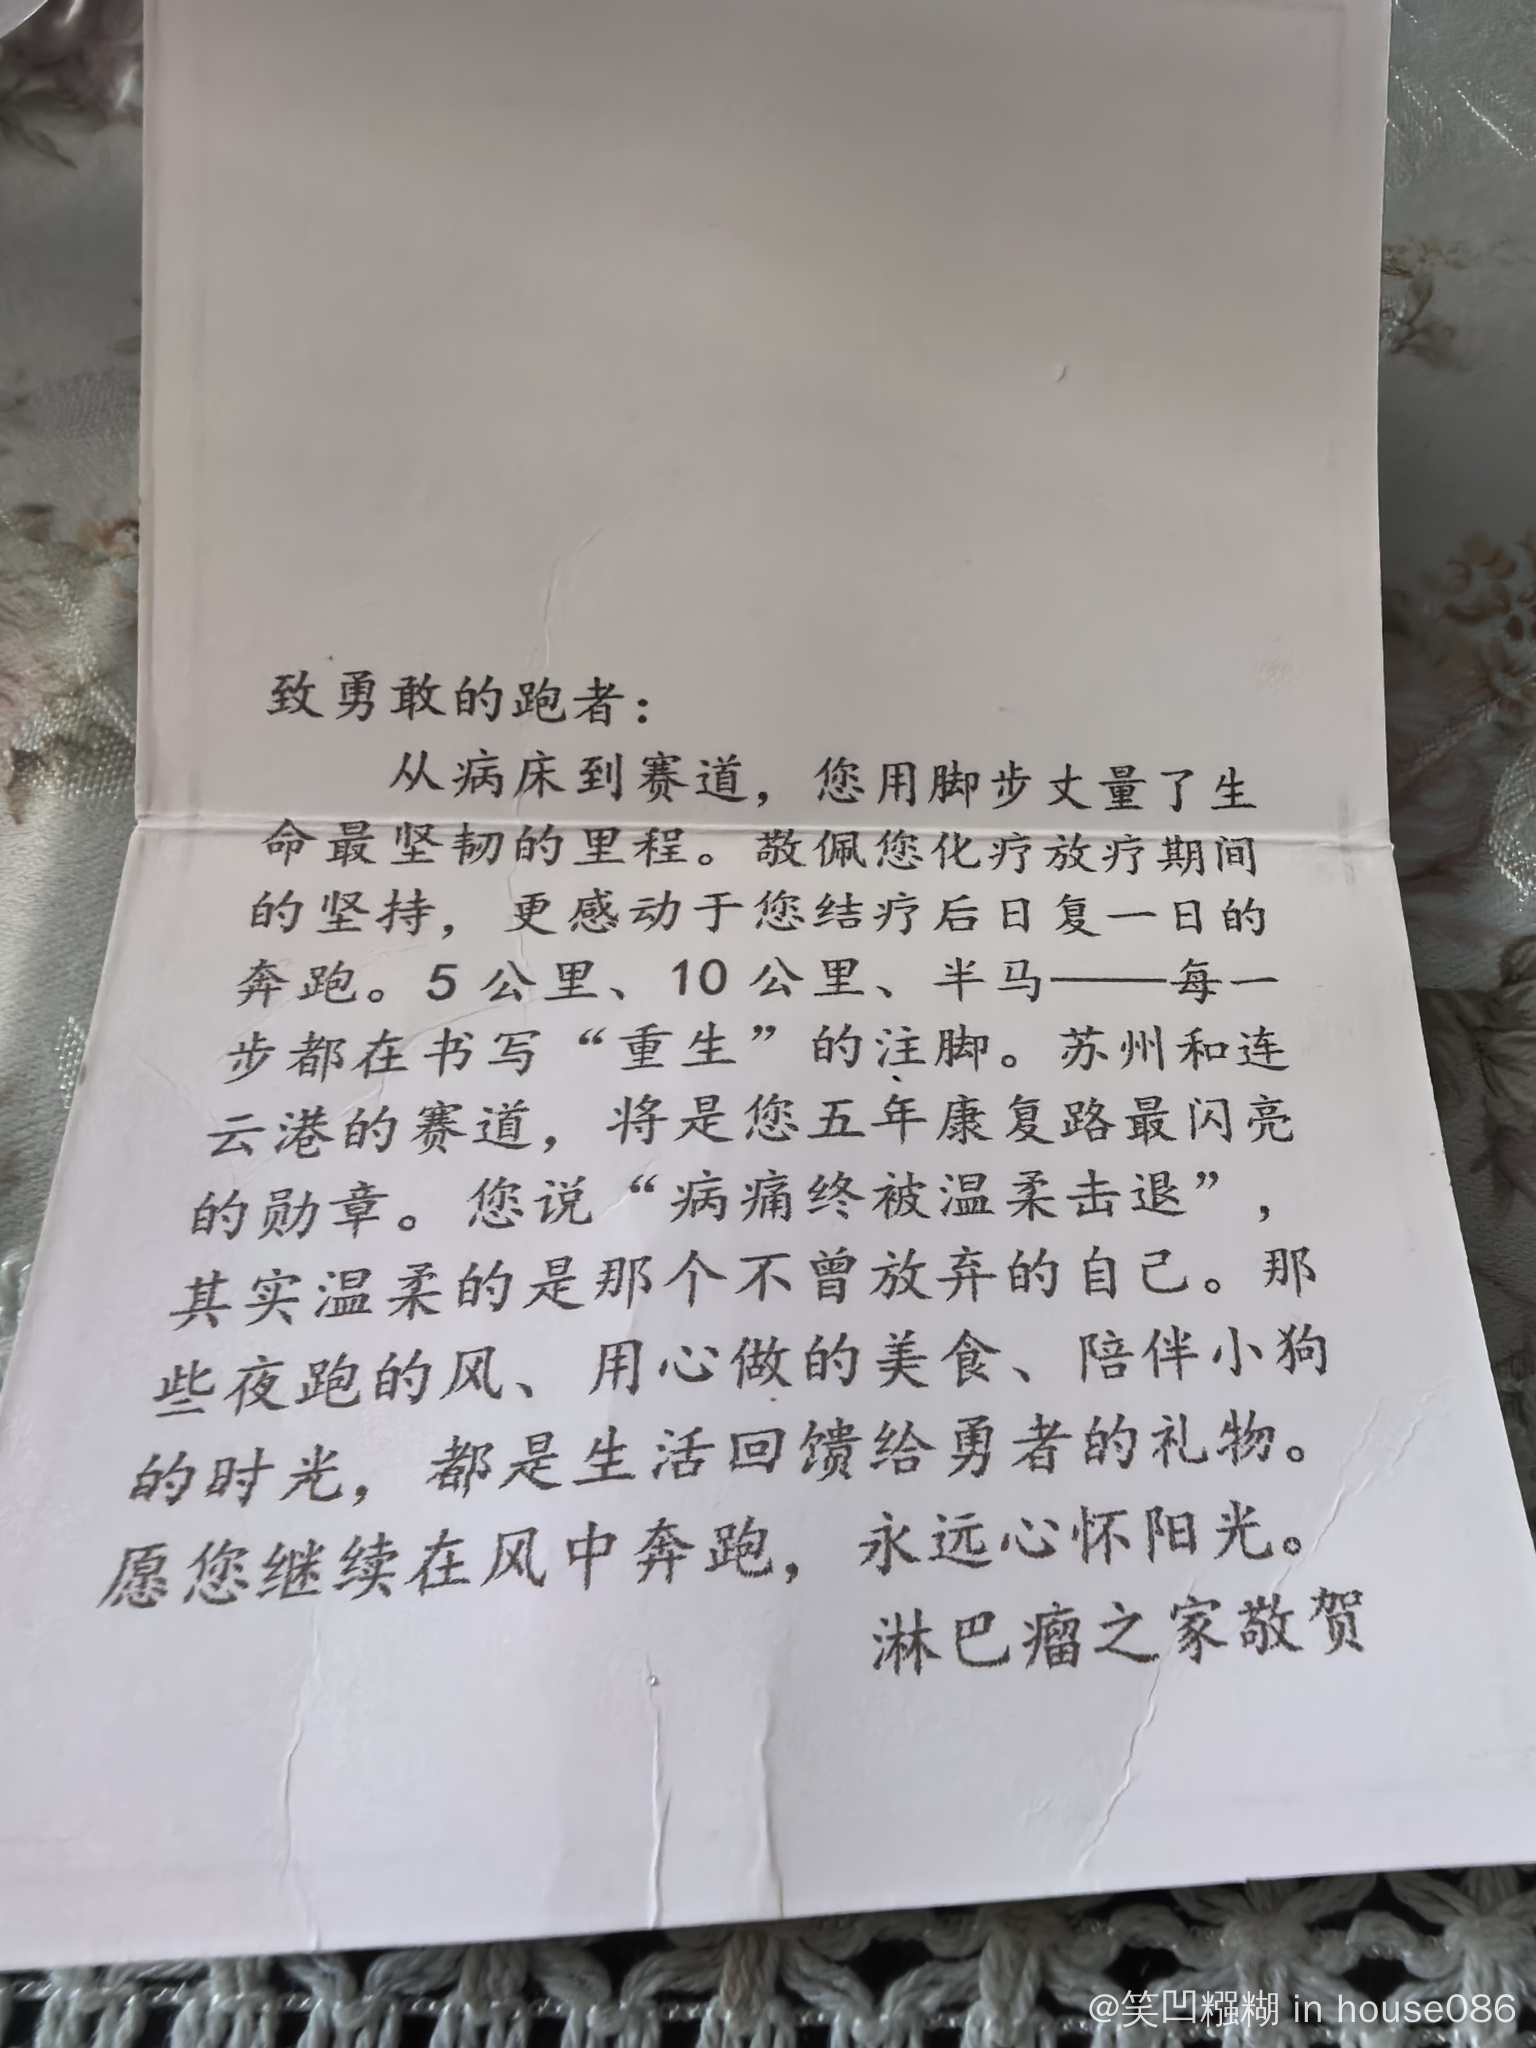 致勇敢的跑者：
从病床到赛道，您用脚步丈量了生
命最坚韧的里程。敬佩您化疗放疗期间
的坚持，更感动于您结疗后日复一日的
奔跑。5公里、10公里、半马——每一
步都在书写“重生”的注脚。苏州和连
云港的赛道，将是您五年康复路最闪亮
的勋章。您说“病痛终被温柔击退”，
其实温柔的是那个不曾放弃的自己。那
些夜跑的风、用心做的美食、陪伴小狗
的时光，都是生活回馈给勇者的礼物。
愿您继续在风中奔跑，永远心怀阳光。
淋巴瘤之家敬贺
@笑凹糨糊 in house086